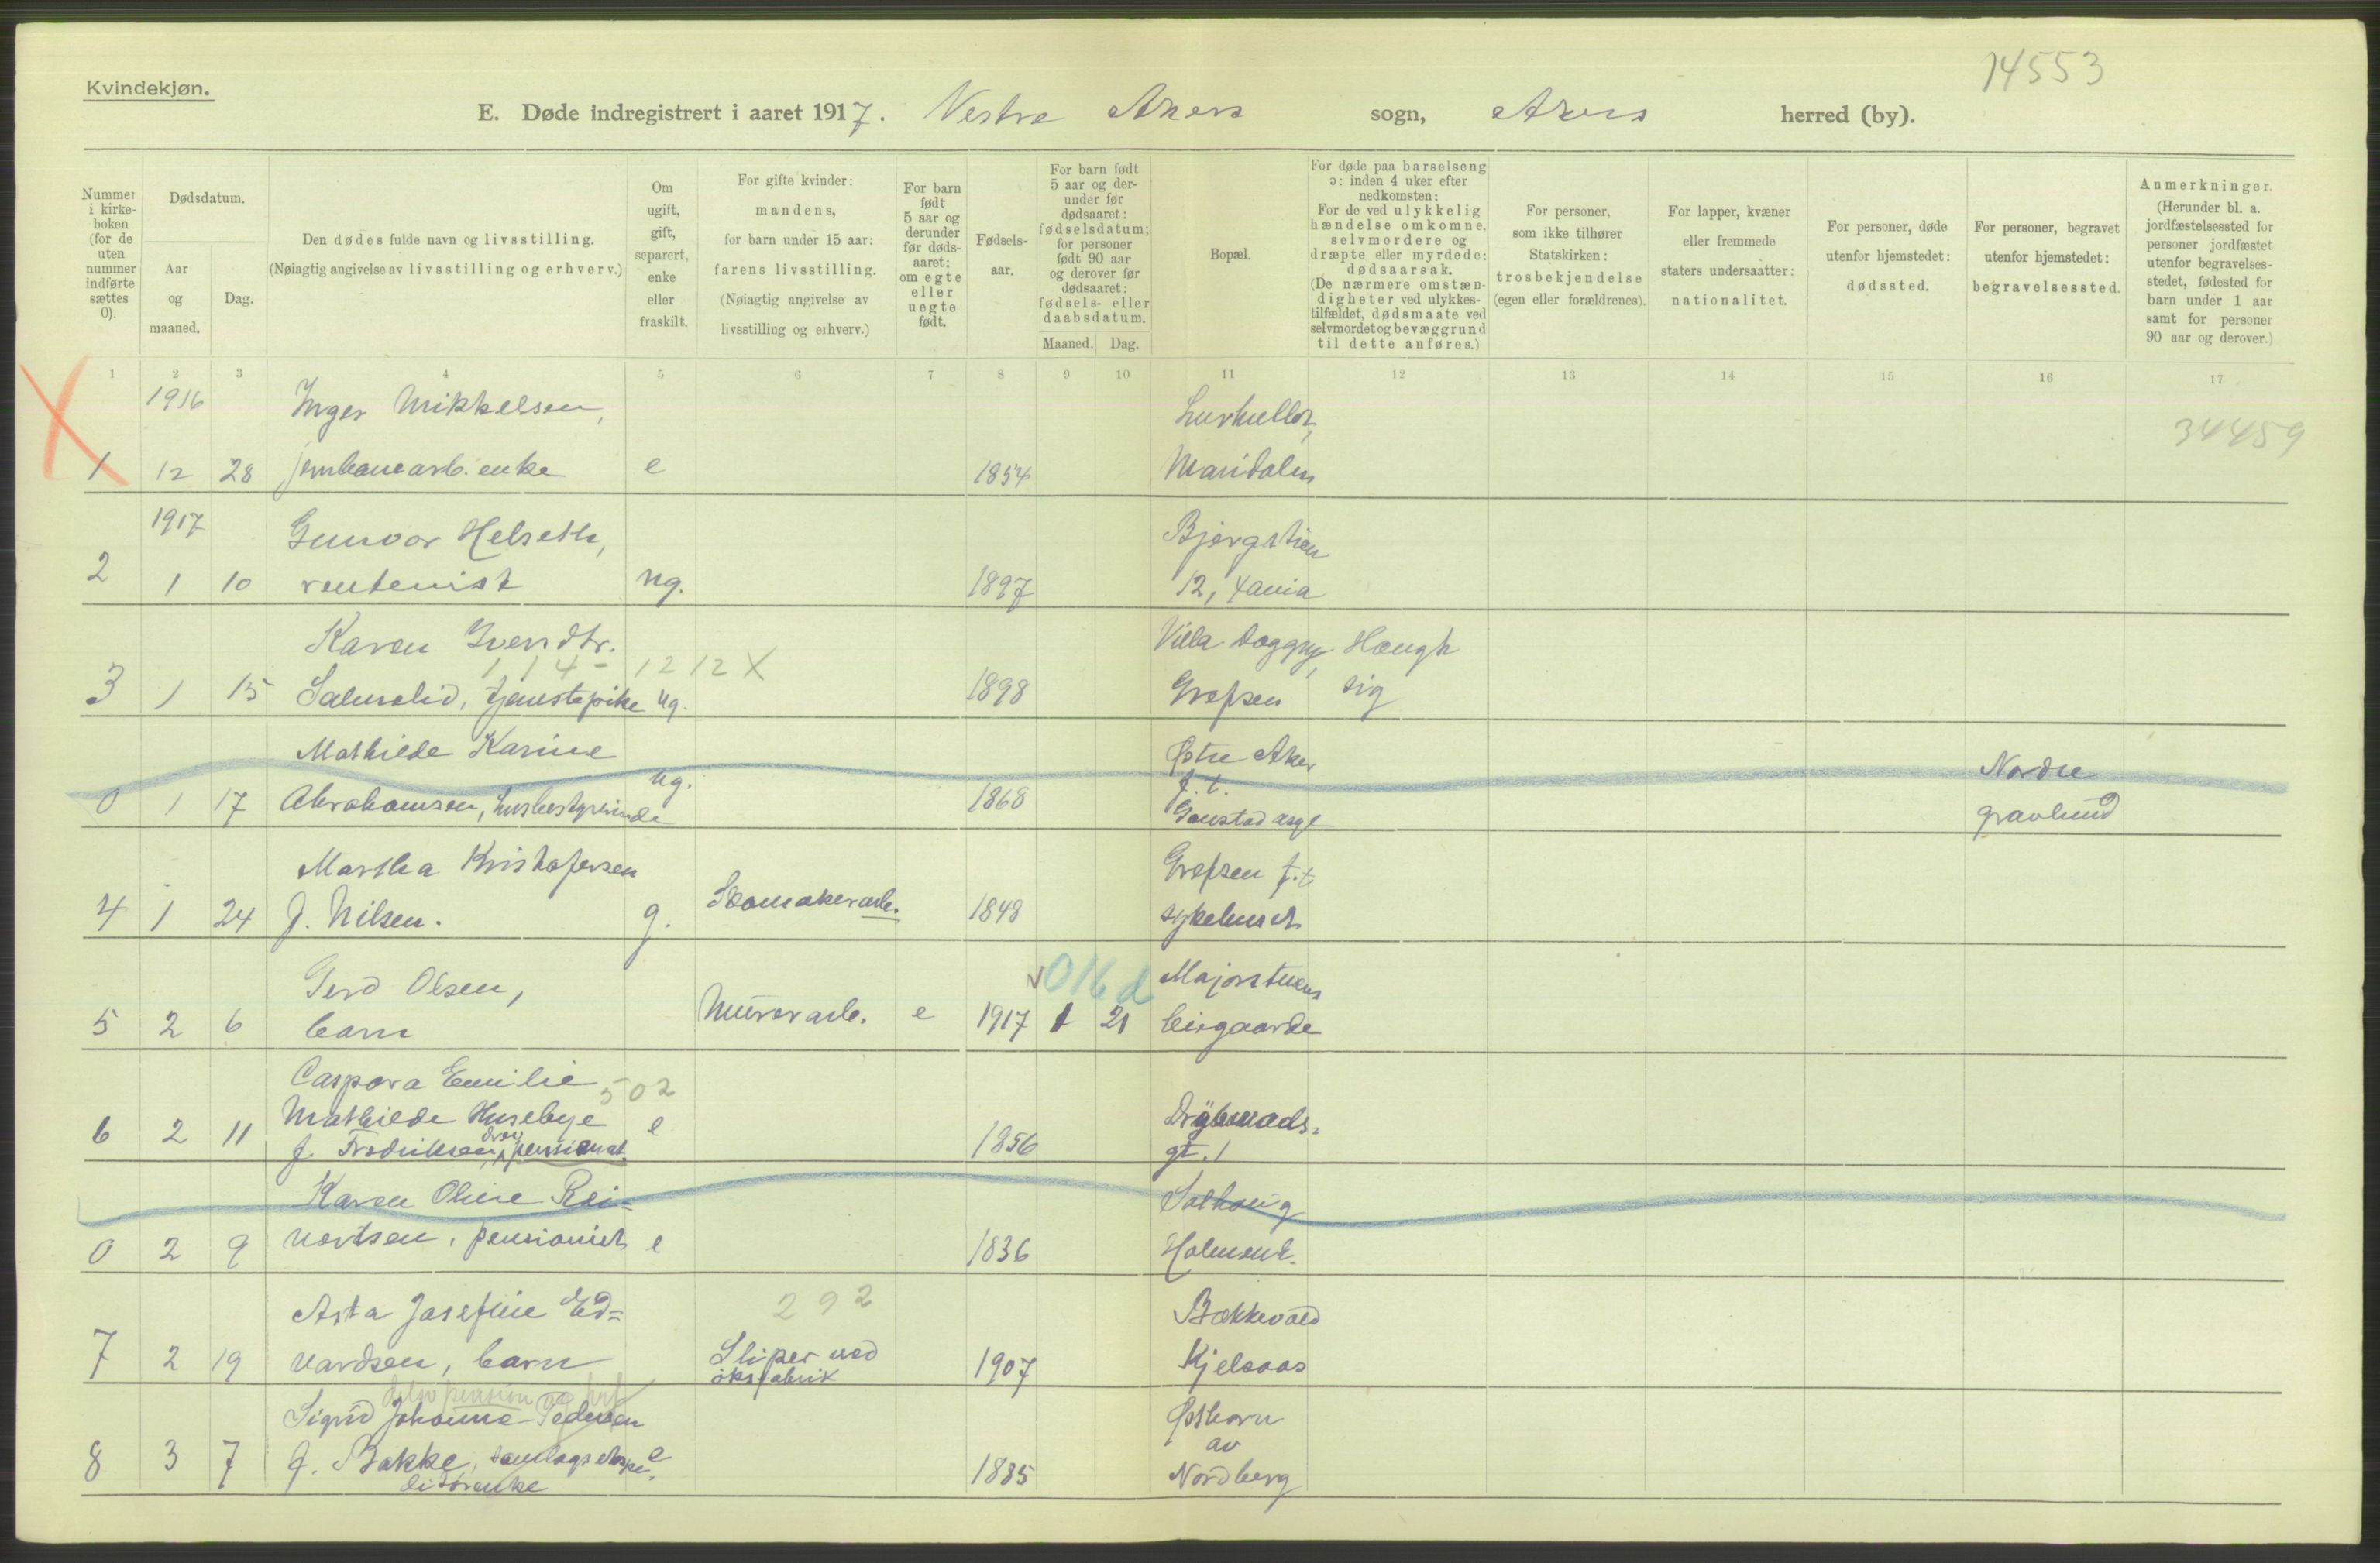 14553
Kvindekjøn.
E. Døde indregistrert i aaret 1917. Vestre Akers sogn, Akers herred (by).
Nummer i kirkeboken (for de uten nummer indførte sættes 0).
Dødsdatum.
Aar og maaned.
Dag.
Den dødes fulde navn og livsstilling.
(Nøiagtig angivelse av livsstilling og erhverv.)
Om ugift, gift, separert, enke eller fraskilt.
For gifte kvinder: mandens, for barn under 15 aar: farens livsstilling. (Nøiagtig angivelse av livsstilling og erhverv.)
For barn født 5 aar og derunder før dødsaaret: om egte eller uegte født.
Fødselsaar.
For barn født 5 aar og derunder før dødsaaret: fødselsdatum; for personer født 90 aar og derover før dødsaaret: fødsels- eller daabsdatum.
Maaned. Dag.
Bopæl.
For døde paa barselseng ɔ: inden 4 uker efter nedkomsten: For de ved ulykkelig hændelse omkomne, selvmordere og dræpte eller myrdede: dødsaarsak. (De nærmere omstændigheter ved ulykkestilfældet, dødsmaate ved selvmordet og bevæggrund til dette anføres.)
For personer, som ikke tilhører Statskirken: trosbekjendelse (egen eller forældrenes).
For lapper, kvæner eller fremmede staters undersaatter: nationalitet.
For personer, døde utenfor hjemstedet: dødssted.
For personer, begravet utenfor hjemstedet: begravelsessted.
Anmerkninger. (Herunder bl. a. jordfæstelsessted for personer jordfæstet utenfor begravelsesstedet, fødested for barn under 1 aar samt for personer 90 aar og derover.)
1 2 3 4 5 6 7 8 9 10 11 12 13 14 15 16 17
1916 Inger Mikkelsen,
34459
1 12 28 jernbanearb. enke e 1854 Maridalen
1917 Gunvor Helseth, Bjergstien
2 1 10 rentenist ug. 1897 12, Xania
Karen Iversdtr. Villa Doggry, Haugh
114- 1212X
3 1 15 tjenestepike ug. 1898 Grefsen sig
Mathilde Karine Østre Aker Nordre
0 1 17 Abrahamsen, husbestyrerinde ug. 1868 f. t. Gaustad asyl gravlund
Martha Kristofersen Grefsen f.t
4 1 24 f. Nilsen. g. Skomakerarb. 1848 sykehuset
Gerd Olsen, 016 d Majorstuens
5 2 6 barn Murerarb. e 1917 1 21 leirgaarde
Caspara Emilie 502
Mathilde Huseby e
6 2 11 f. Fredriksen, drev pensionat. 1856 gt. 1
Karen Oline Rei- Solhaug
0 2 9 nertsen, pensionist e 1836 Holmenk.
Asta Josefine Ed- 292 Bækkevold
7 2 19 vardsen, barn Sliper ved øksfabrik 1907 Kjelsaas
Sigrid Johanne Pedersen Østhorn
8 3 7 f. Bakke, samlagsekspeditørenke e. 1885 av Nordberg